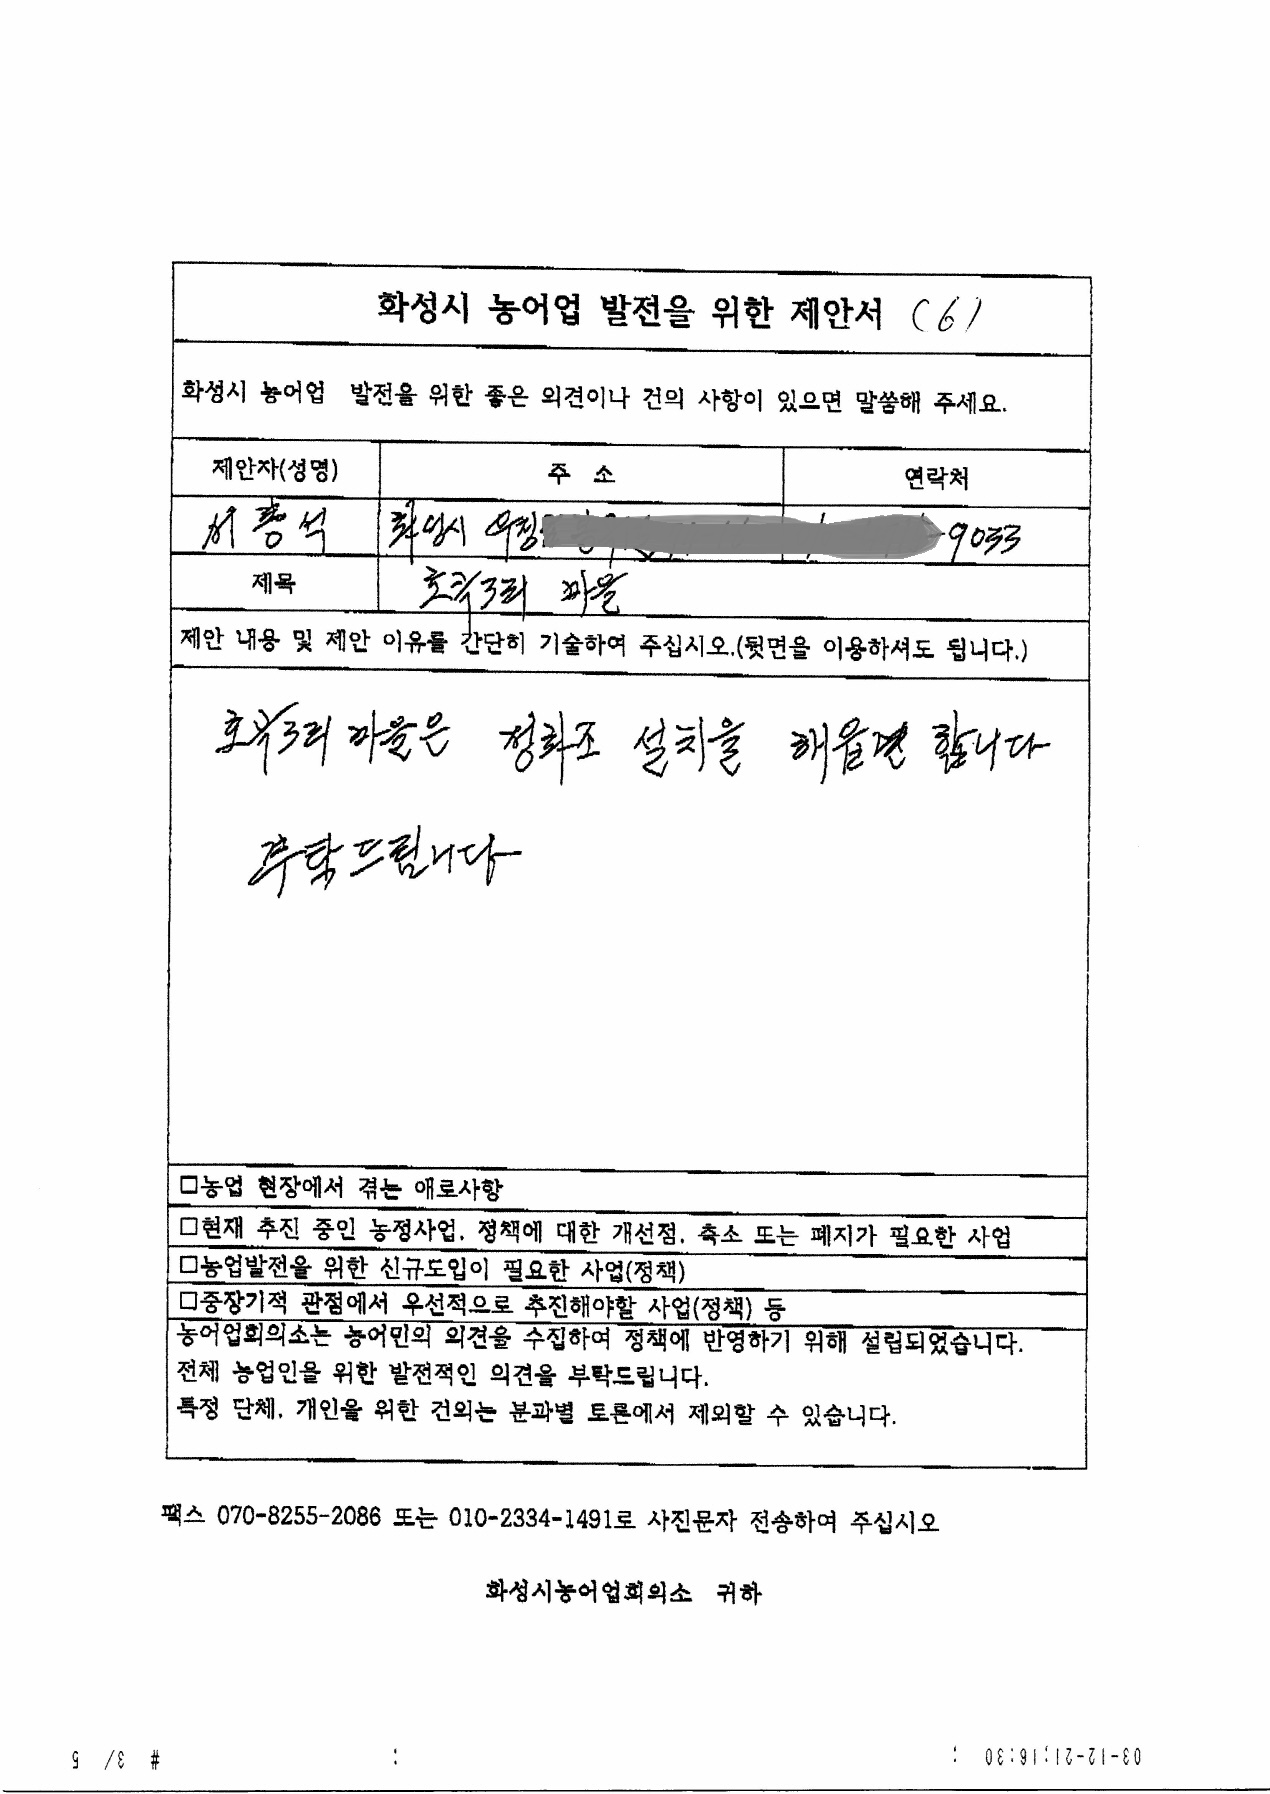 화성시 농어업 발전을 위한 제안서 (6)
화성시 농어업 발전을 위한 좋은 의견이나 건의 사항이 있으면 말씀해 주세요.
제안자(성명) 주 소 연락처
서 석 화성시 우정 9033
제목 호곡3리 마을
제안 내용 및 제안 이유를 간단히 기술하여 주십시오.(뒷면을 이용하셔도 됩니다.)
호곡3리 마을은 정화조 설치을 해읍면 합니다
부탁드립니다
□농업 현장에서 겪는 애로사항
□현재 추진 중인 농정사업, 정책에 대한 개선점, 축소 또는 폐지가 필요한 사업
□농업발전을 위한 신규도입이 필요한 사업(정책)
□중장기적 관점에서 우선적으로 추진해야할 사업(정책) 등
농어업회의소는 농어민의 의견을 수집하여 정책에 반영하기 위해 설립되었습니다.
전체 농업인을 위한 발전적인 의견을 부탁드립니다.
특정 단체, 개인을 위한 건의는 분과별 토론에서 제외할 수 있습니다.
팩스 070-8255-2086 또는 010-2334-1491로 사진문자 전송하여 주십시오
화성시농어업회의소 귀하
03-12-21;16:30 : : # 3/ 5